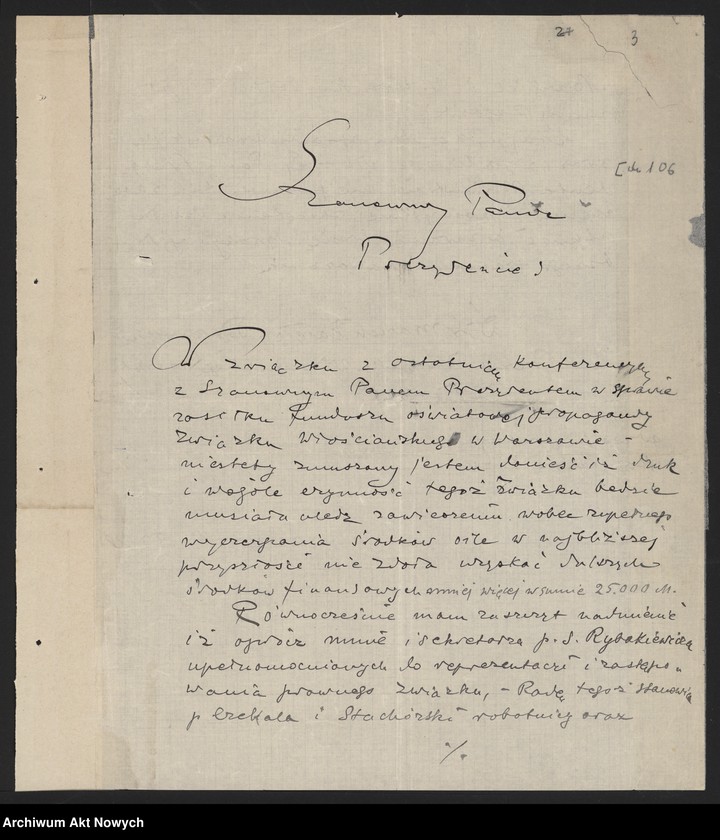 24 3
[do 106
Szanowny Panie
Prezydencie!
W związku z ostatnią konferencyą
z Szanownym Panem Prezydentem w sprawie
zasiłku funduszu oświatowej propagandy
związku włościańskiego w Warszawie –
niestety zmuszony jestem donieść iż druk
i wogóle czynność tegoż związku będzie
musiała uledz zawieszeniu wobec zupełnego
wyczerpania środków o ile w najbliższej
przyszłość nie zdoła uzyskać dalszych
środków finansowych mniej więcej w sumie 25.000 M.
Równocześnie mam zaszczyt nadmienić
iż oprócz mnie i sekretarza p. S. Rybakiewicza
upełnomocnionych do reprezentacji i zastępo-
wania prawnego związku, – Radę tegoż stanowią
p Czekała i Stachórski robotnicy oraz
%
Archiwum Akt Nowych